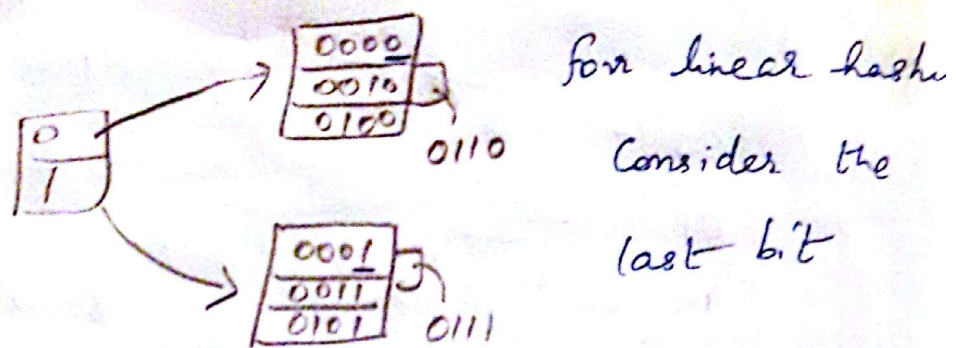 0000
0010
0100
0110
for linear
0
1
Consider the
last bit
0001
0011
0101
0111